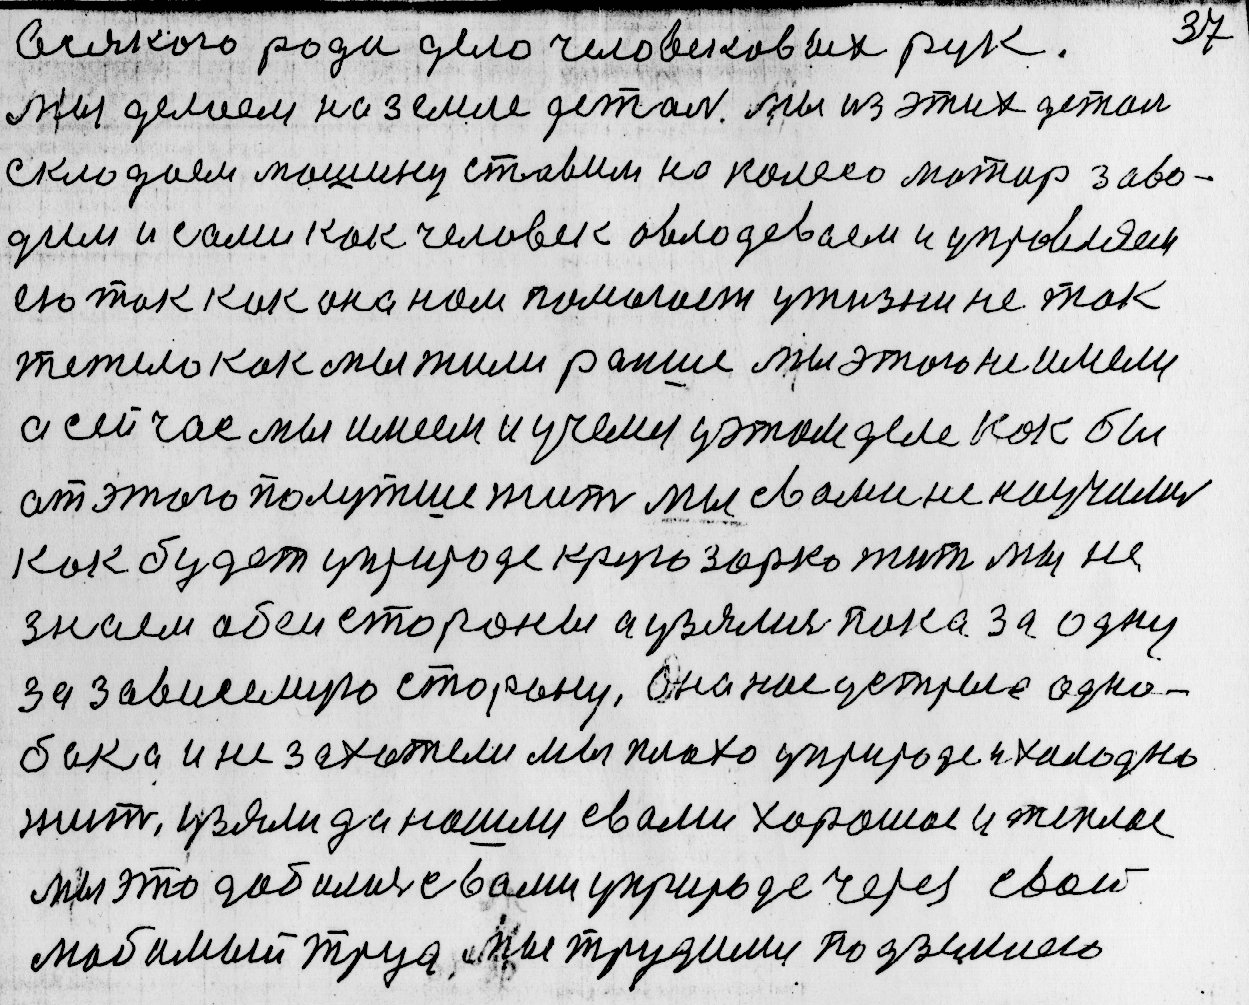 37
Всякого роди дело человековых рук.
мы делаем на земле детал. мы из этих детал
склодаем машину ставим на колесо матор заво-
дим и сами как человек овлодеваем и управляем
ею так как она нам помогает у жизни не так
тежело как мы жили ранше мы этого не имели
а сейчас мы имеем и учемся у этом деле как бы
от этого полутше жит мы свами не научился
как будет у природе кругозорко жит мы не
знаем обеи стороны а узялися пока за одну
за зависемую сторону, Она нас устриле одно-
бака и не захотели мы плохо у природе и халодно
жит, узяли да нашли свами хорошое и теплое
мы это добилися свами у природе через свой
любимый труд, мы трудимся под землею